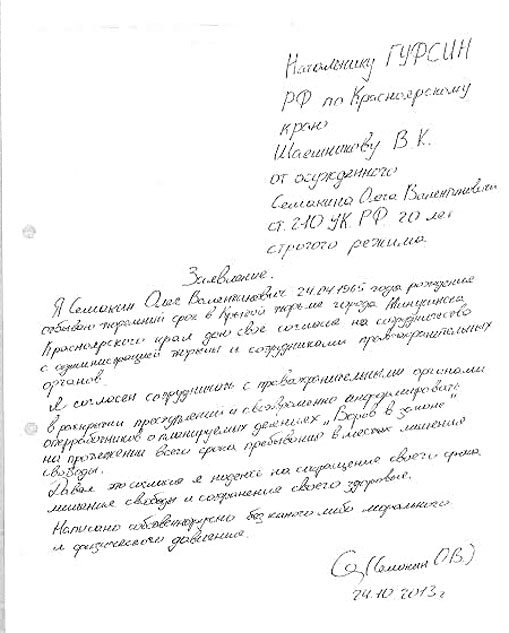 Начальнику ГУФСИН
РФ по Красноярскому
краю
Шаешникову В.К.
от осужденного
Семакина Олега Валентиновича
ст. 210 УК РФ 20 лет
строгого режима.
Заявление.
Я Семакин Олег Валентинович 24.04.1965 года рождения
отбываю тюремный срок в Крытой тюрьме города Минусинска
Красноярского края даю свое согласие на сотрудничество
с администрацией тюрьмы и сотрудниками правоохранительных
органов.
Я согласен сотрудничать с правоохранительными органами
в раскрытии преступлений и своевременно информировать
оперработников о планируемых деяниях „Воров в законе"
на протяжении всего срока пребывания в местах лишения
свободы.
Давая это согласие я надеюсь на сокращение своего срока
лишения свободы и сохранение своего здоровья.
Написано собственноручно без какого либо морального
и физического давления.
(Семакин О.В.)
24.10.2013 г